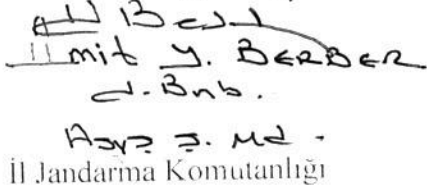 Ümit Y. BERBER
J. Bnb.
Asyş Ş. Md.
İl Jandarma Komutanlığı